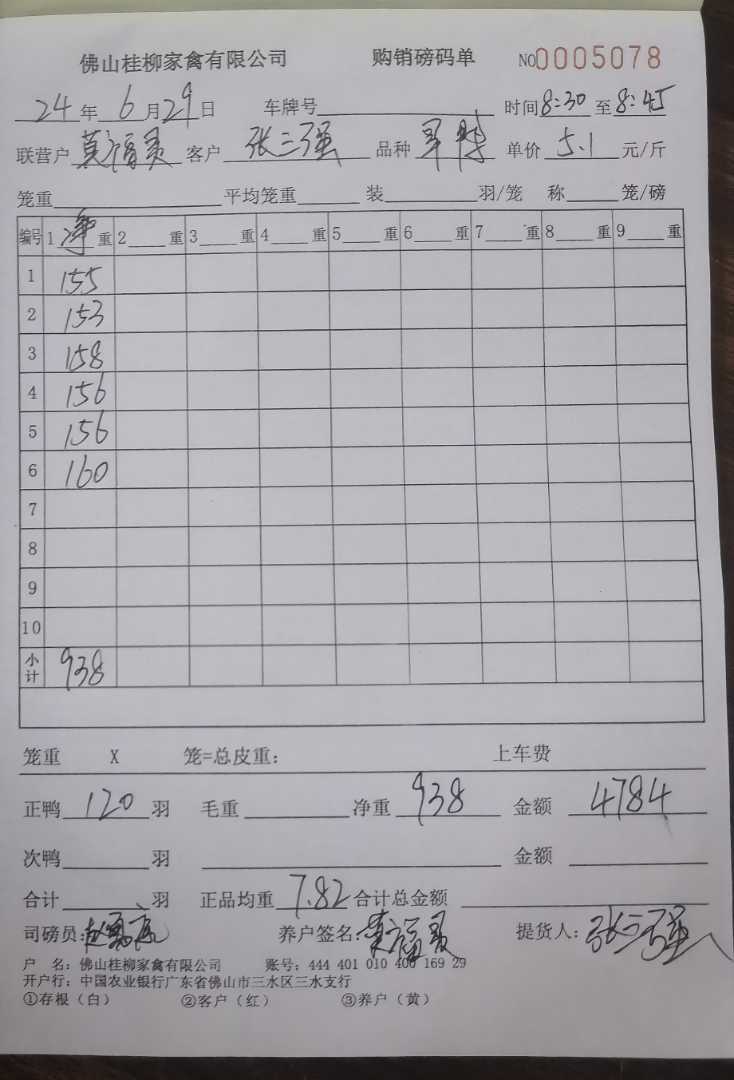 佛山桂柳家禽有限公司 购销磅码单 NO0005078
24年6月29日 车牌号 时间8:30至8:45
联营户 客户 张三强 品种 单价 5.1 元/斤
笼重 平均笼重 装 羽/笼 称 笼/磅
编号 1 净 重 2 重 3 重 4 重 5 重 6 重 7 重 8 重 9 重
1 155
2 153
3 158
4 156
5 156
6 160
7
8
9
10
小计 938
笼重 X 笼=总皮重: 上车费
正鸭 120 羽 毛重 净重 938 金额 4784
次鸭 羽 金额
合计 羽 正品均重 7.82 合计总金额
司磅员: 养户签名: 提货人: 张三强
户 名: 佛山桂柳家禽有限公司 账号: 444 401 010 400 169 29
开户行: 中国农业银行广东省佛山市三水区三水支行
①存根（白） ②客户（红） ③养户（黄）